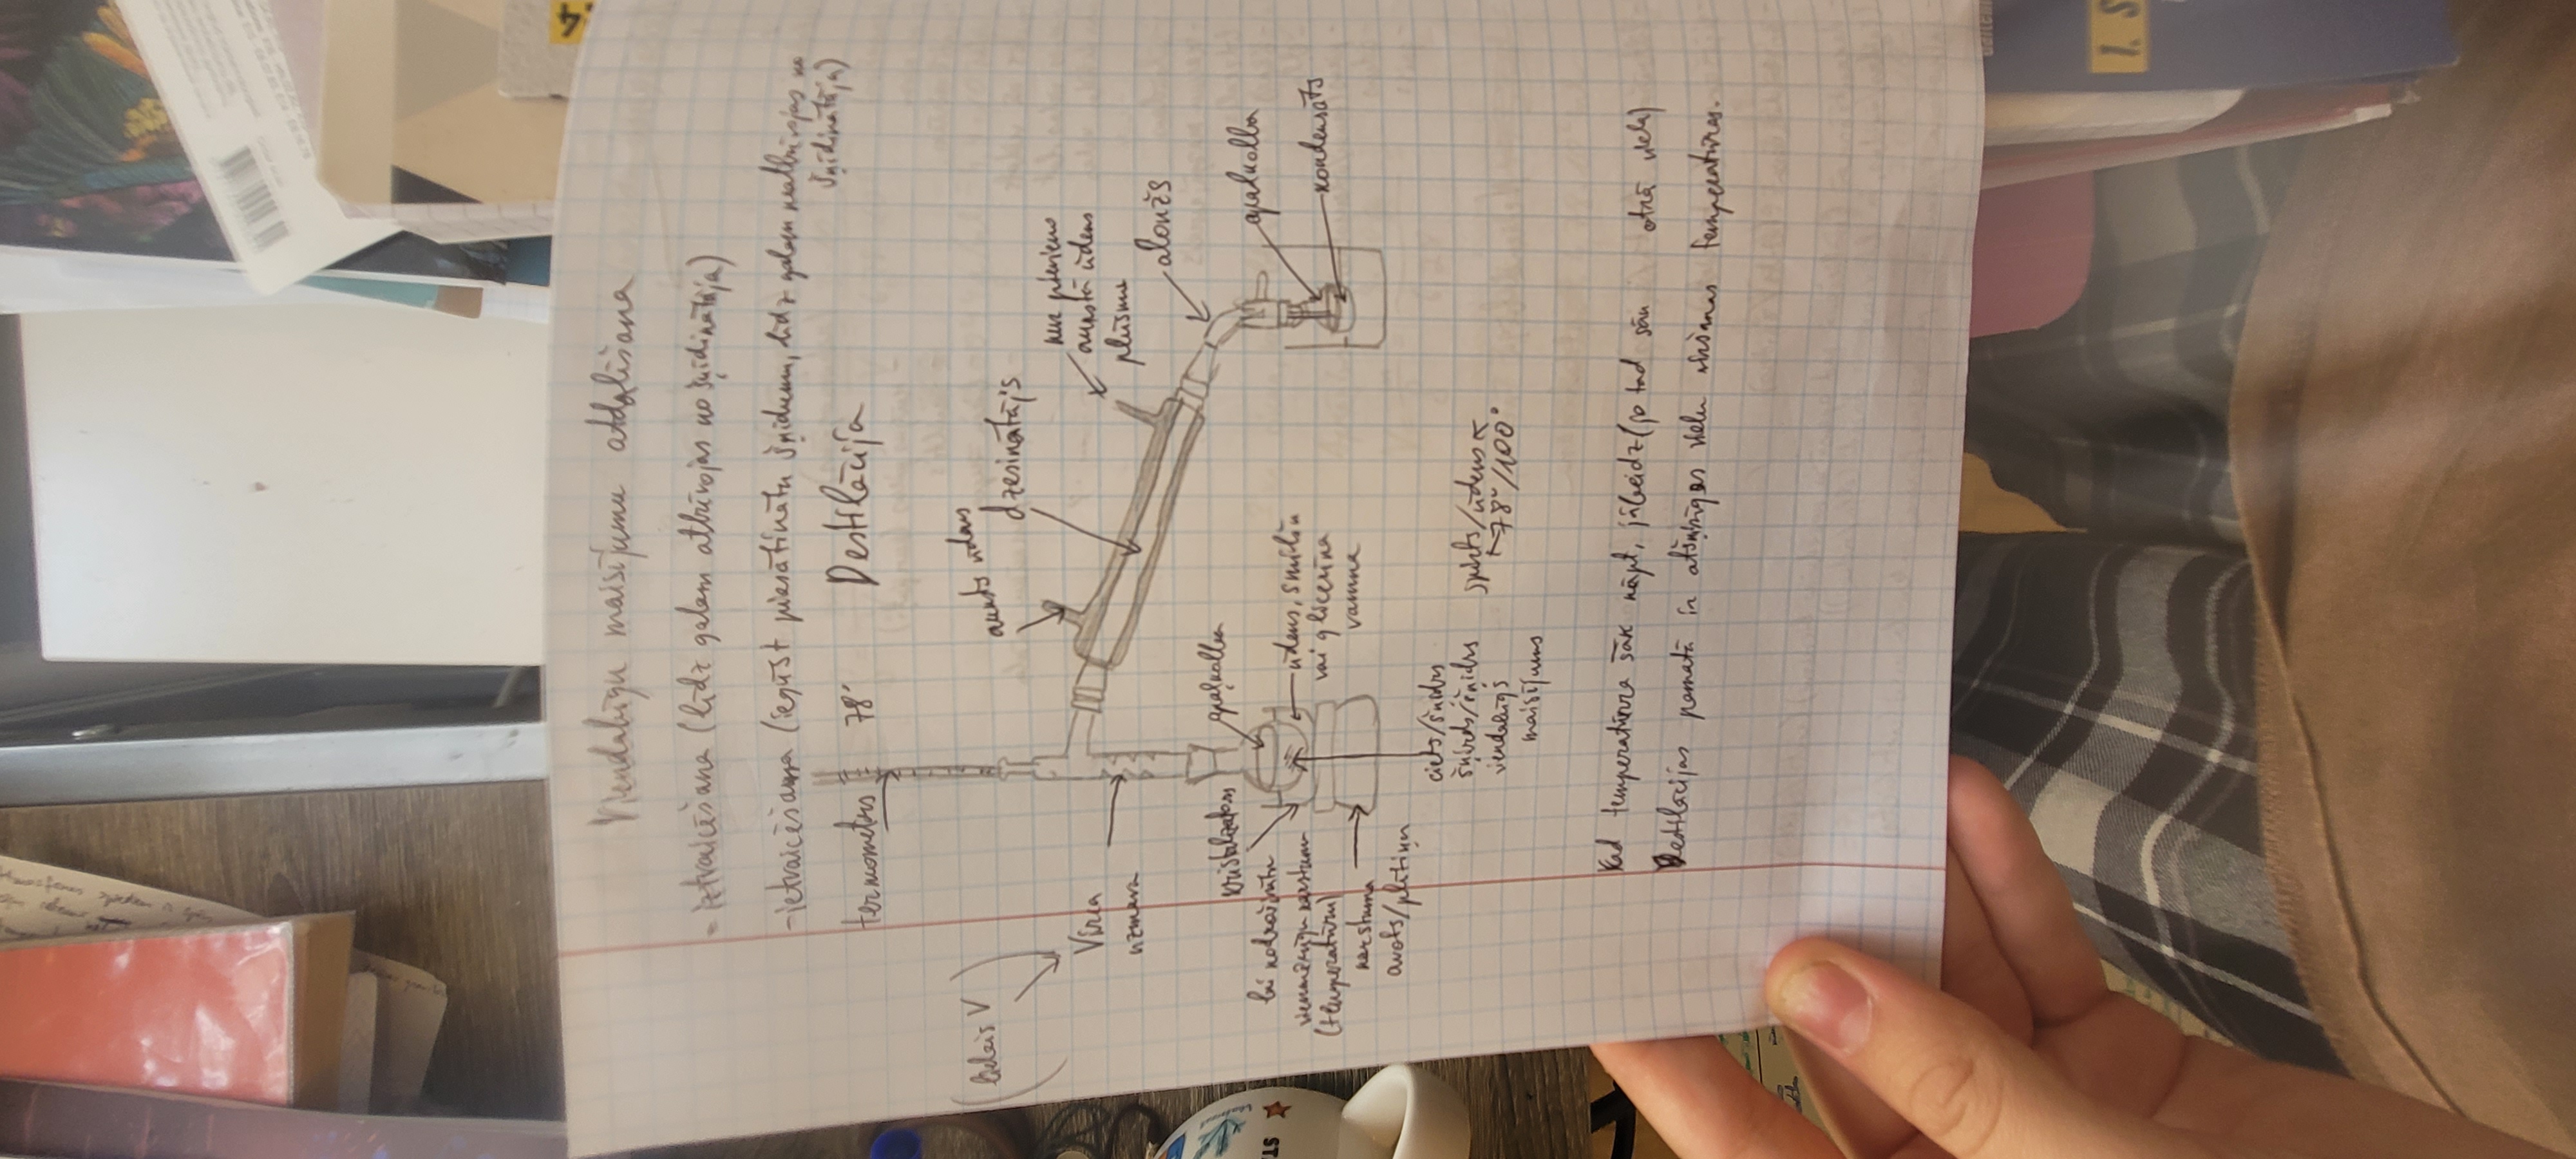 Viendabīgu maisījumu atdalīšana
- iztvaicēšana (līdz galam atbrīvojas no šķīdinātāja)
- ietvaicēšana (iegūst piesātinātu šķīdumu, līdz galam neatbrīvojas no
šķīdinātāja)
termometrs 78° Destilācija
(lielais V)
auksts ūdens
dzesinātājs
kur pievieno
aukstā ūdens
plūsmu
Virca
uzmava
alonžs
kristalizators
apaļkolba
apaļkolba
lai nodrošinātu
vienmērīgu karstumu
(temperatūru)
ūdens, smilšu
vai glicerīna
vanna
kondensāts
karstuma
avots/plītiņa
ciets/šķidrs
šķirds/šķidrs
viendabīgs
maisījums
spirts/ūdens
78°/100°
Kad temperatūra sāk kāpt, jābeidz (jo tad sāk otrā viela)
Destilācijas pamatā ir atšķirīgas vielu viršanas temperatūras.
STA
1. S